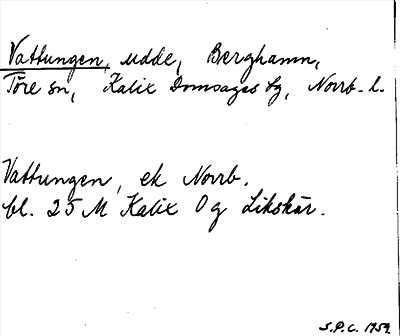 Vattungen, udde, Berghamn,
Töre sn, Kalix Domsagas tg, Norrb. l.
Vattungen, ek Norrb.
bl. 25 M Kalix O g Likskär.
S.P.C. 1959.